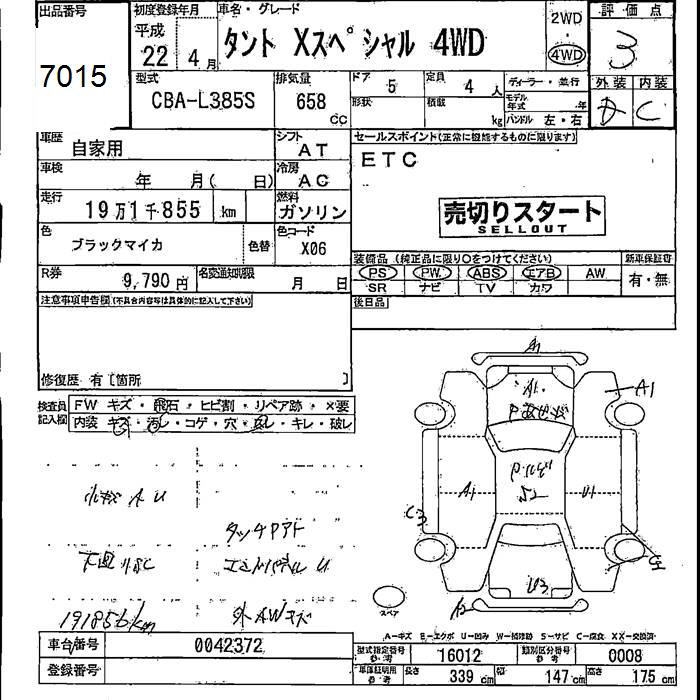 出品番号 初度登録年月 車名・グレード 2WD 評価点
平成
22年 4月 タント Xスペシャル 4WD ・ 4WD 3
7015
型式 排気量 ドア 5 定員 4人 ディーラー・並行 外装 内装
CBA-L385S 658cc 形状 積載 kg モデル年式 年 ハンドル 左・右 D C
車歴 自家用 シフト AT セールスポイント(正常に機能するものに限ります)
車検 年 月( 日) 冷房 AC ETC
走行 19万1千855 km 燃料 ガソリン 売切りスタート
SELLOUT
色 ブラックマイカ 色替 色コード X06
装備品(純正品に限り○をつけてください) 新車保証書
R券 9,790円 名変通知期限 月 日 PS PW ABS エアB AW 有・無
SR ナビ TV カワ
注意事項申告欄(不具合内容等は具体的に記入して下さい) 後日品
修復歴 有〔箇所 〕
検査員記入欄 FW キズ・飛石・ヒビ割・リペア跡・×要
内装 キズ・汚レ・コゲ・穴・ヌレ・キレ・破レ
A1
A1
A1
A1 U1
52
C3
U3
小キズ A U
タッチPアト
下廻りSC エンドパネル U
191856km 外AWキズ
スペア
A-キズ E-エクボ U-凹み W-補修跡 S-サビ C-腐食 XX-交換済
車台番号 0042372 型式指定番号 参考 16012 類別区分番号 参考 0008
登録番号 車庫証明用 参考 長さ 339cm 幅 147cm 高さ 175cm